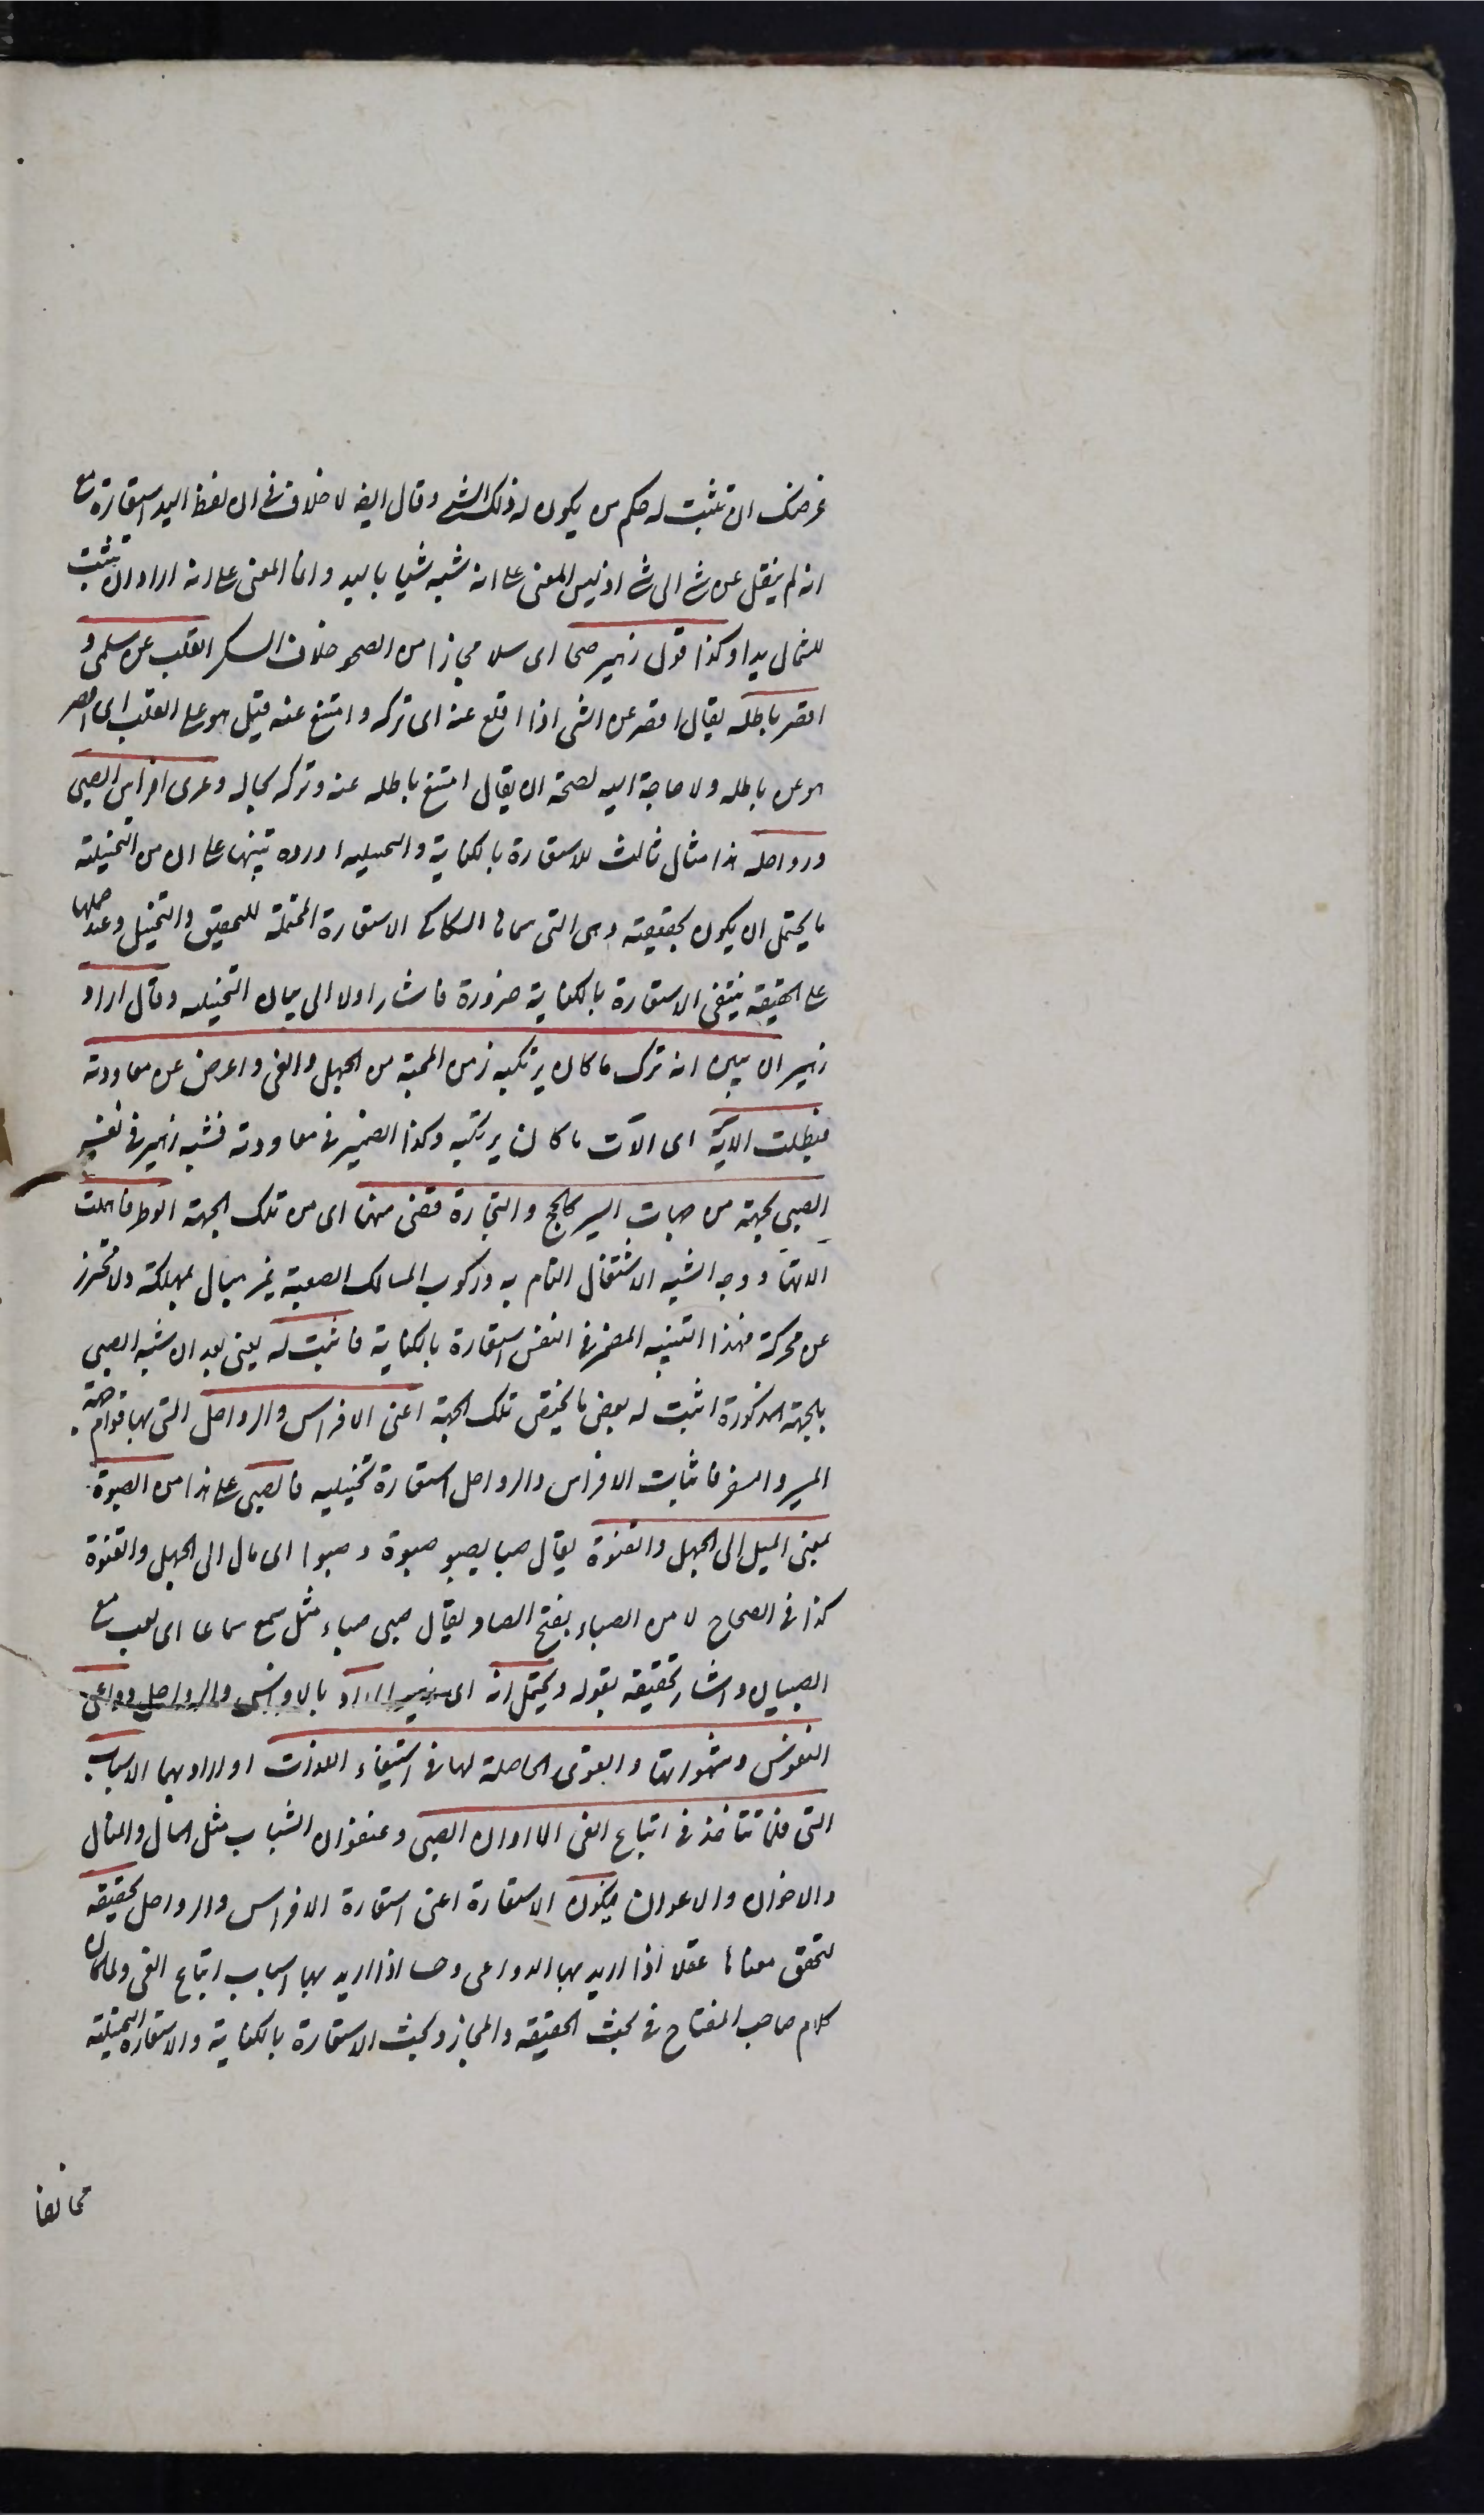 غرضك ان تثبت له حكم من يكون له ذلك الشئ وقال ايضا لا خلاف فى ان لفظ اليد استعارة مع
انه لم ينقل عن شئ الى شئ اذ ليس المعنى على انه شبه شيا باليد وانما المعنى على انه اراد ان يثبت
للشمال يدا وكذا قول زهير صحا اى سلا مجازا من الصحو خلاف السكر القلب عن سلمى و
اقصر باطله يقال اقصر عن الشئ اذا اقلع عنه اى تركه وامتنع عنه قيل هو على القلب اى اقصر
هو عن باطله ولا حاجة اليه لصحة ان يقال امتنع باطله عنه وتركه بحاله وعرى افراس الصبى
ورواحله هذا مثال ثالث للاستعارة بالكناية والتخييلية اورده تنبيها على ان من التخييلية
ما يحتمل ان يكون تحقيقية وهى التى سماها السكاكى الاستعارة المحتملة للتحقيق والتخييل وعند حملها
على الحقيقة ينتفى الاستعارة بالكناية ضرورة فاشار اولا الى بيان التخييلية وقال اراد
زهير ان يبين انه ترك ما كان يرتكبه زمن المحبة من الجهل والغى واعرض عن معاودته
فبطلت الآته اى الآت ما كان يرتكبه وكذا الضمير فى معاودته فشبه زهير فى نفسه
الصبى بجهة من جهات المسير كالحج والتجارة قضى منها اى من تلك الجهة الوطر فاهملت
الاتها ووجه الشبه الاشتغال التام به وركوب المسالك الصعبة غير مبال بمهلكة ولا محترز
عن معركة فهذا التشبيه المضمر فى النفس استعارة بالكناية فاثبت له يعنى بعد ان شبه الصبى
بالجهة المذكورة اثبت له بعض ما يختص تلك الجهة اعنى الافراس والرواحل التى بها قوام جهة
المسير والسفر فاثبات الافراس والرواحل استعارة تخييلية فالصبى على هذا من الصبوة
بمعنى الميل الى الجهل والفتوة يقال صبا يصبو صبوة وصبوا اى مال الى الجهل والفتوة
كذا فى الصحاح لا من الصباء بفتح الصاد يقال صبى صباء مثل سمع سماعا اى لعب مع
الصبيان واشار تحقيقه بقوله ويحتمل انه اى زهير اراد بالافراس والرواحل دواعى
النفوس وشهواتها والقوى الحاصلة لها فى استيفاء اللذات او اراد بهما الاسباب
التى قلما تتاخذ فى اتباع الغى الا اوان الصبى وعنفوان الشباب مثل المال والمنال
والاخوان والاعوان فيكون الاستعارة اعنى استعارة الافراس والرواحل تحقيقية
لتحقق معناها عقلا اذا اريد بها الدواعى وحسا اذا اريد بها اسباب اتباع الغى ولما كان
كلام صاحب المفتاح فى بحث الحقيقة والمجاز وبحث الاستعارة بالكناية والاستعارة التخييلية
مخالفا